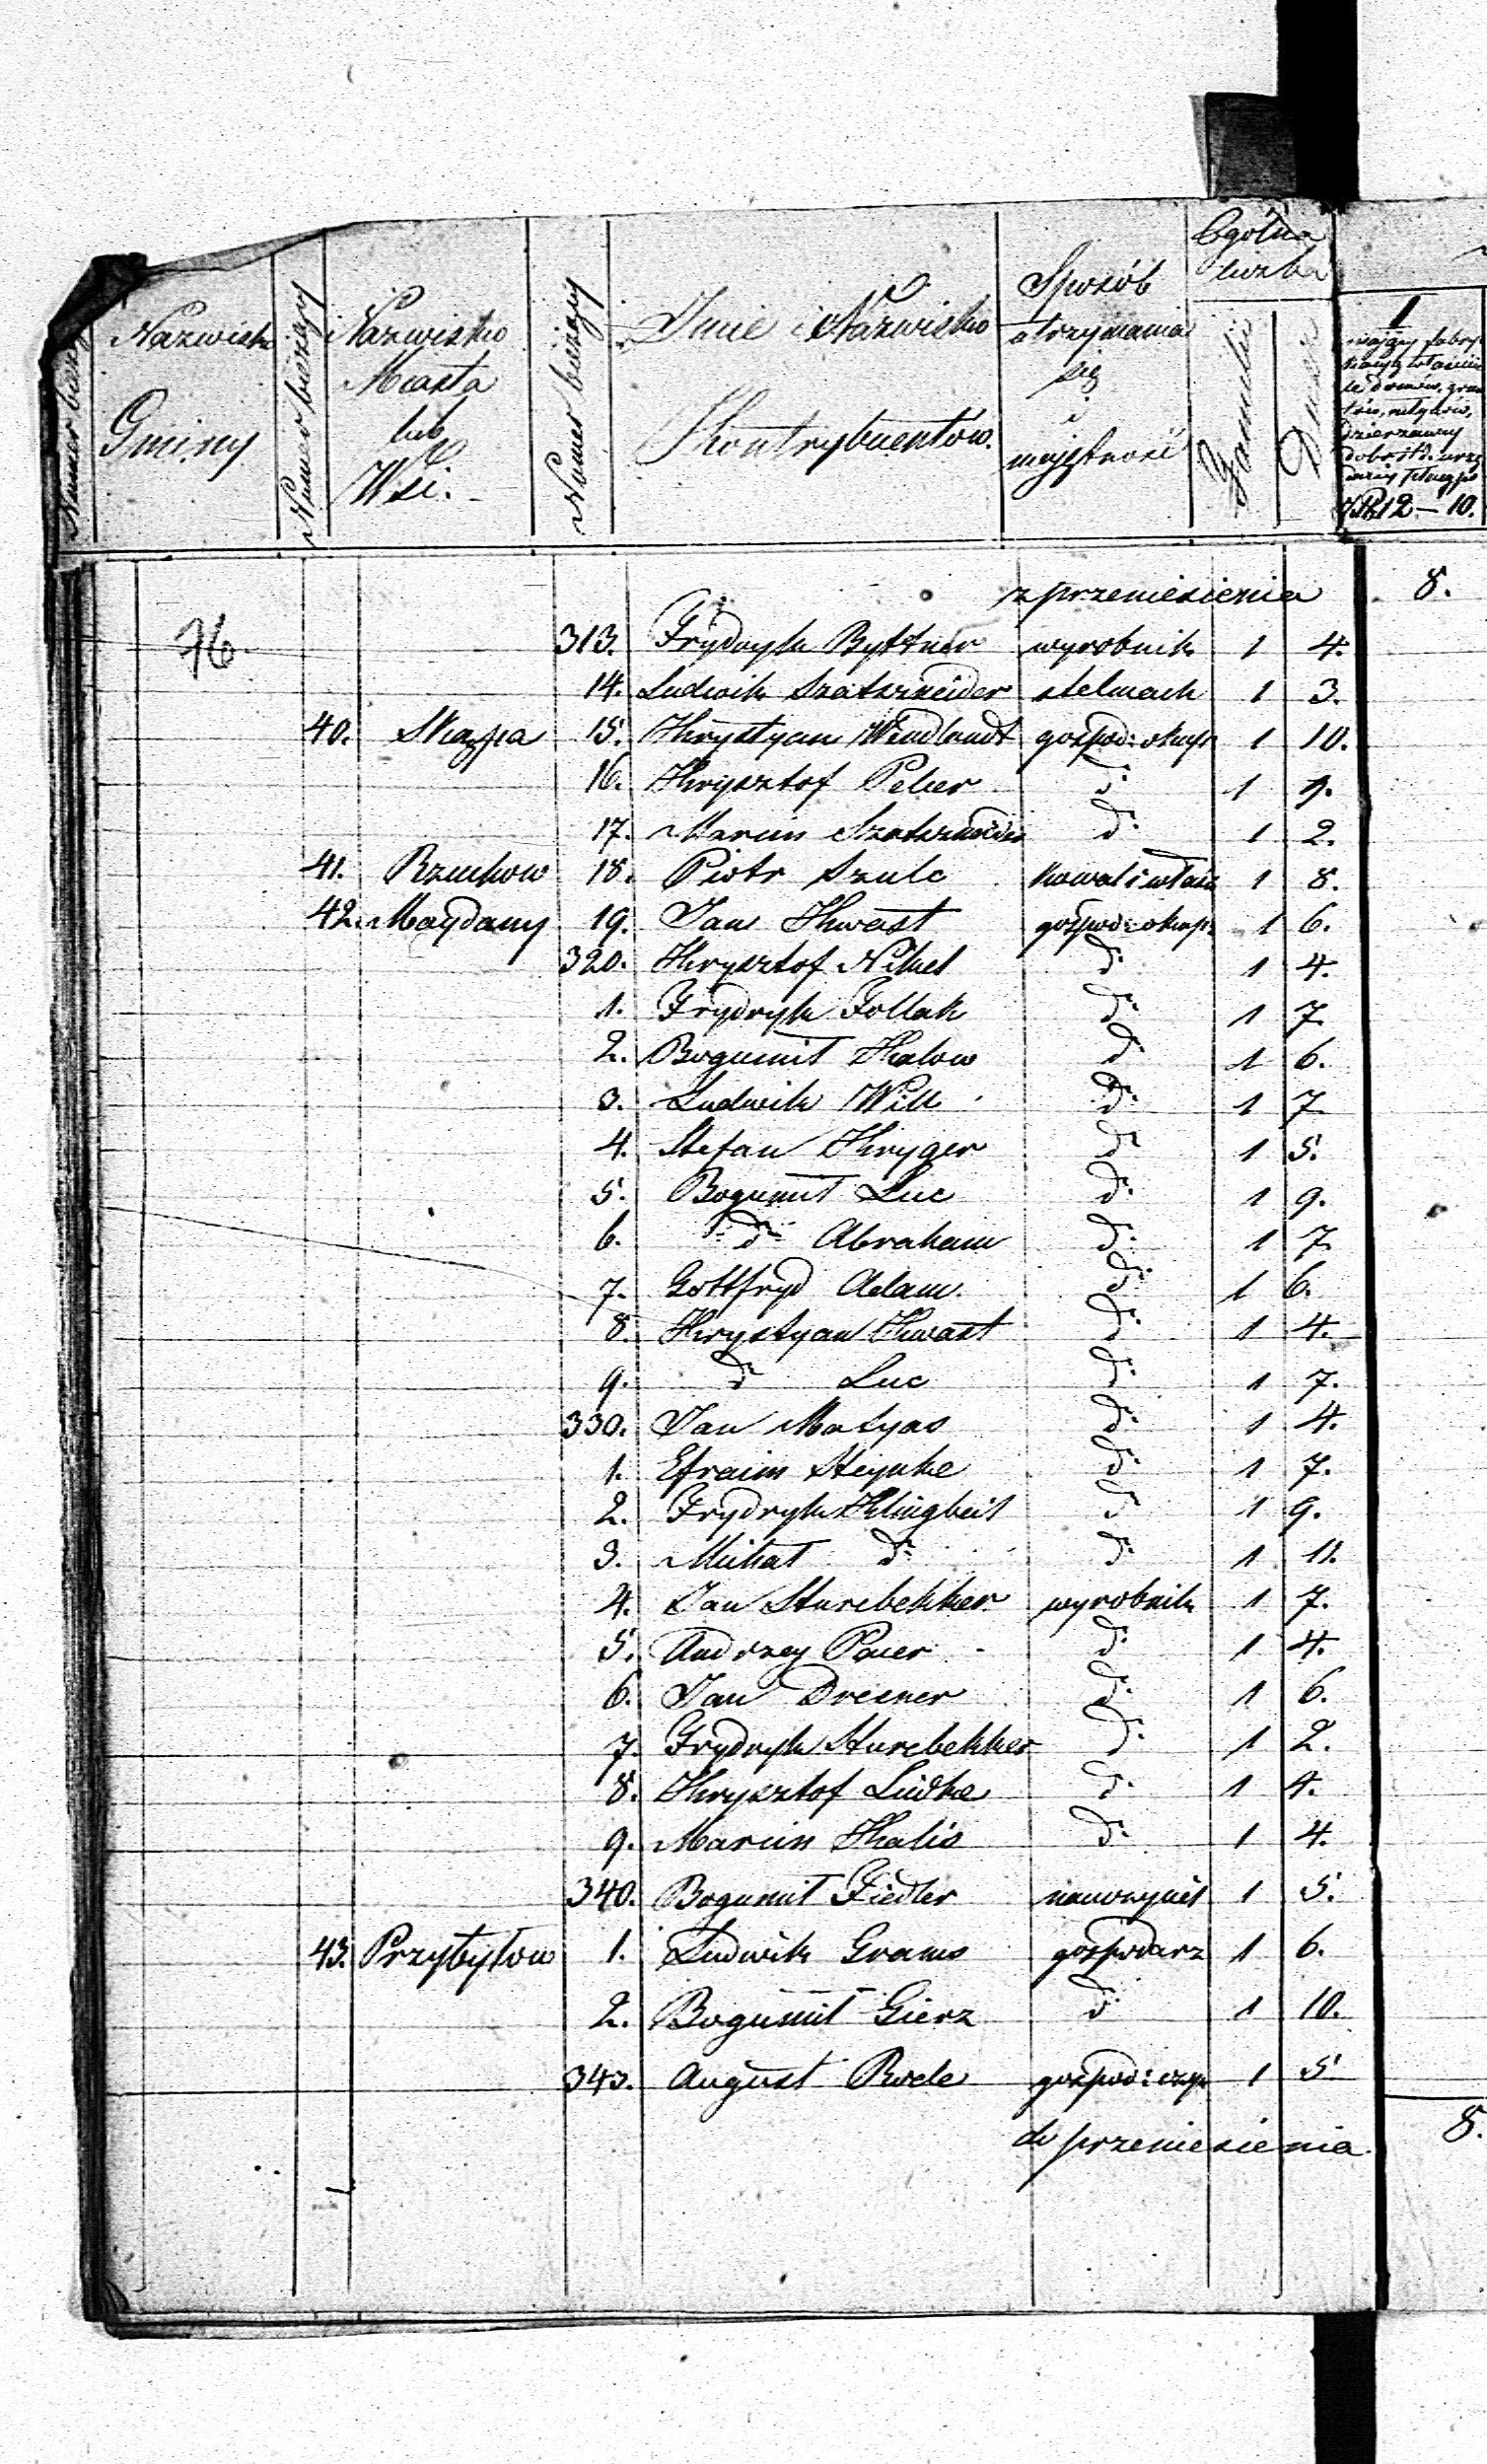 Numer bieżący
Nazwisko Gminy
Numer bieżący
Nazwisko Miasta lub Wsi.
Numer bieżący
Imie i Nazwisko Kontrybuentów.
Sposób utrzymania się i majętność
Ogólna liczba
Familii
Dusz
1
12 — 10.
z przeniesienia 8.
76
313. Frydryk Byttner wyrobnik 1 4.
14. Ludwik Szatszneider stelmach 1 3.
40. Skazpa 15. Krystyan Wendlandt gospod: okup 1 10.
16. Krysztof Peler do 1 9.
17. Marcin Szatszneider do 1 2.
41. Rzuchow 18. Piotr Szulc kowal i właś 1 8.
42. Maydany 19. Jan Kwast gospod: okup. 1 6.
320. Krysztof Nikel do 1 4.
1. Frydryk Follak do 1 7.
2. Bogumił Kalow do 1 6.
3. Ludwik Will do 1 7.
4. Stefan Kryger do 1 5.
5. Bogumił Luc do 1 9.
6. do Abraham do 1 7.
7. Gottfryd Adam. do 1 6.
8. Krystyan Kwast do 1 4.
9. do Luc do 1 7.
330. Jan Matyas do 1 4.
1. Efraim Steynke do 1 7.
2. Frydryk Klingbeil do 1 9.
3. Michał do do 1 11.
4. Jan Sturebekker wyrobnik 1 7.
5. Andrzey Pauer do 1 4.
6. Jan Dresner do 1 6.
7. Frydryk Sturebekker do 1 2.
8. Krysztof Lüdke do 1 4.
9. Marcin Kalis do 1 4.
340. Bogumił Fiedler nauczyciel 1 5.
43. Przybyłow 1. Ludwik Grams gospodarz 1 6.
2. Bogumił Gierz do 1 10.
343. August Rode gospod: czyn 1 5.
do przeniesienia 8.